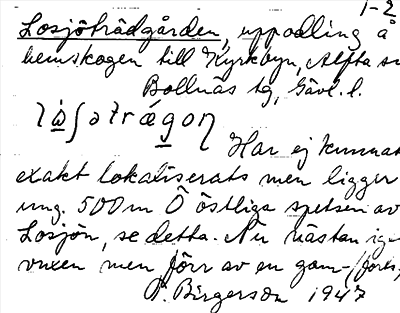 1-2
Losjöträdgården, uppodling å
hemskogen till Kyrkbyn, Alfta sn
Bollnäs tg, Gävl. l.
Har ej kunnat
exakt lokaliserats men ligger
ung. 500 m Ö östliga spetsen av
Losjön, se detta. Nu nästan ig
vuxen men förr av en gam-
P. Birgerson 1947